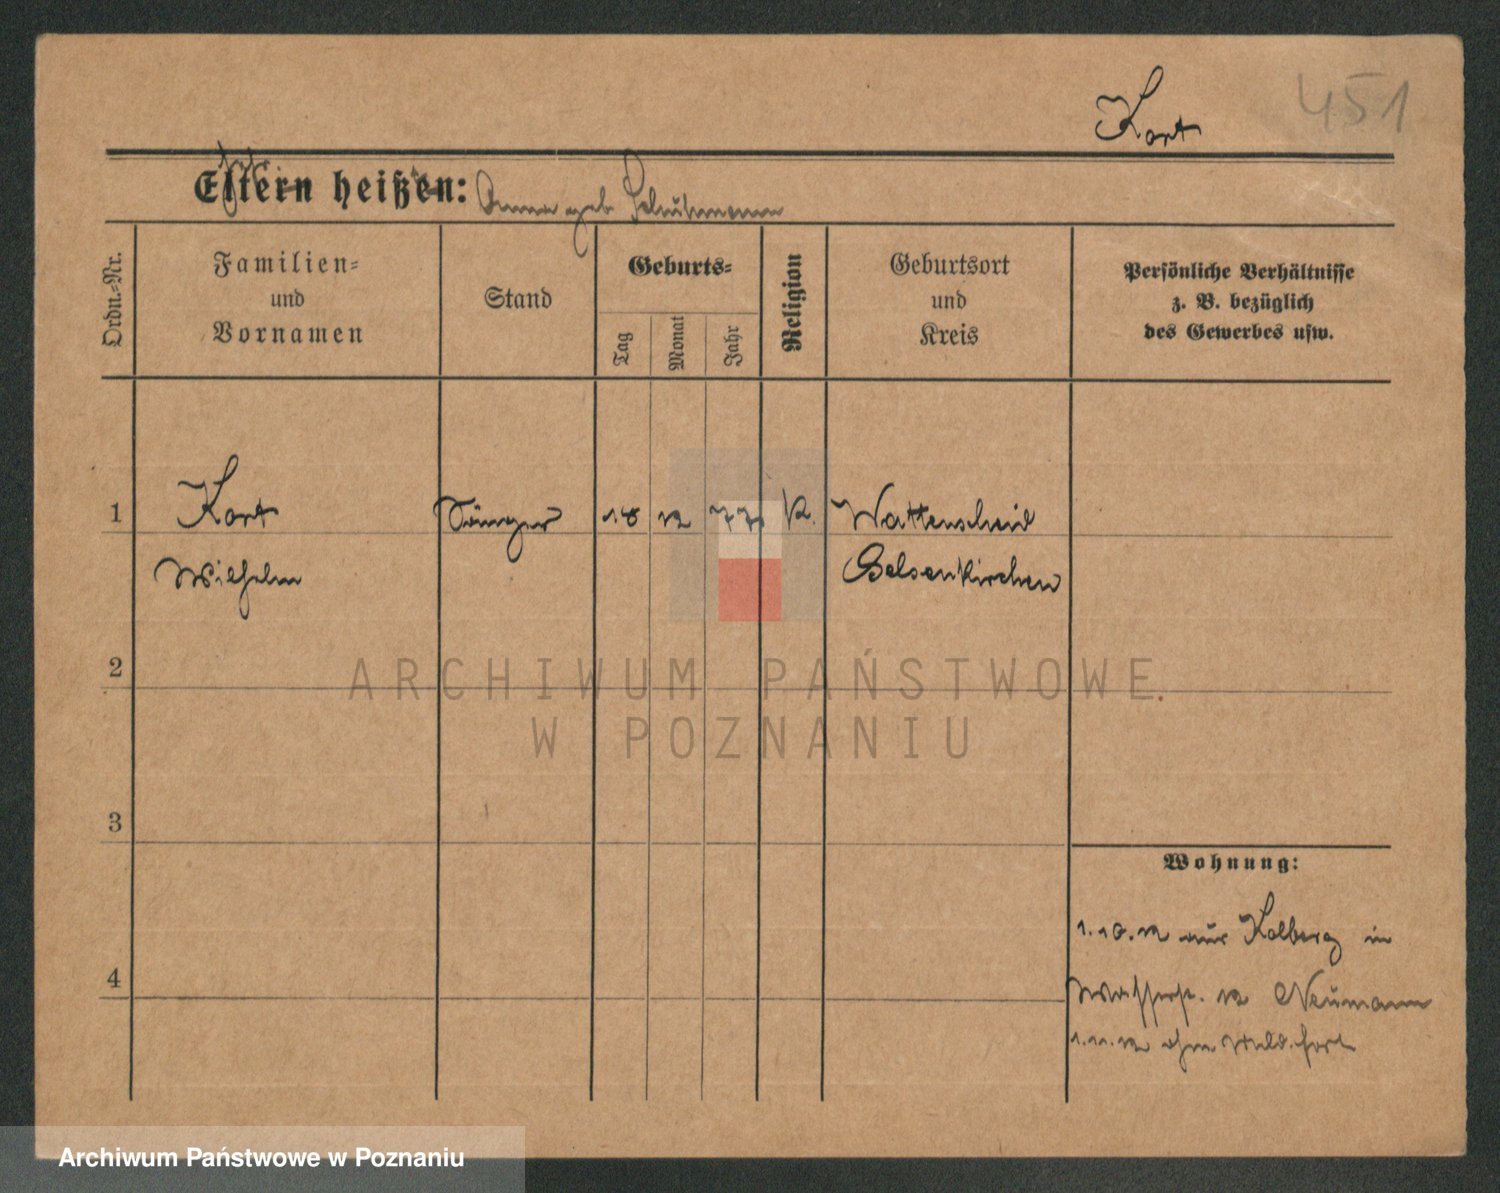 Kort 451
Eltern heißen: Anna geb Schuhmann
Ordn.-Nr.
Familien-
und
Vornamen
Stand
Geburts-
Tag
Monat
Jahr
Religion
Geburtsort
und
Kreis
Persönliche Verhältnisse
z. B. bezüglich
des Gewerbes usw.
1 Kort Sänger 18 12 77 K. Wattenscheid
Wilhelm Gelsenkirchen
2
3
4
Wohnung:
1.10.12 aus Kolberg in
Wasserstr. 12 Neumann
1.11.12 ohne Meld. fort
ARCHIWUM PAŃSTWOWE
W POZNANIU
Archiwum Państwowe w Poznaniu